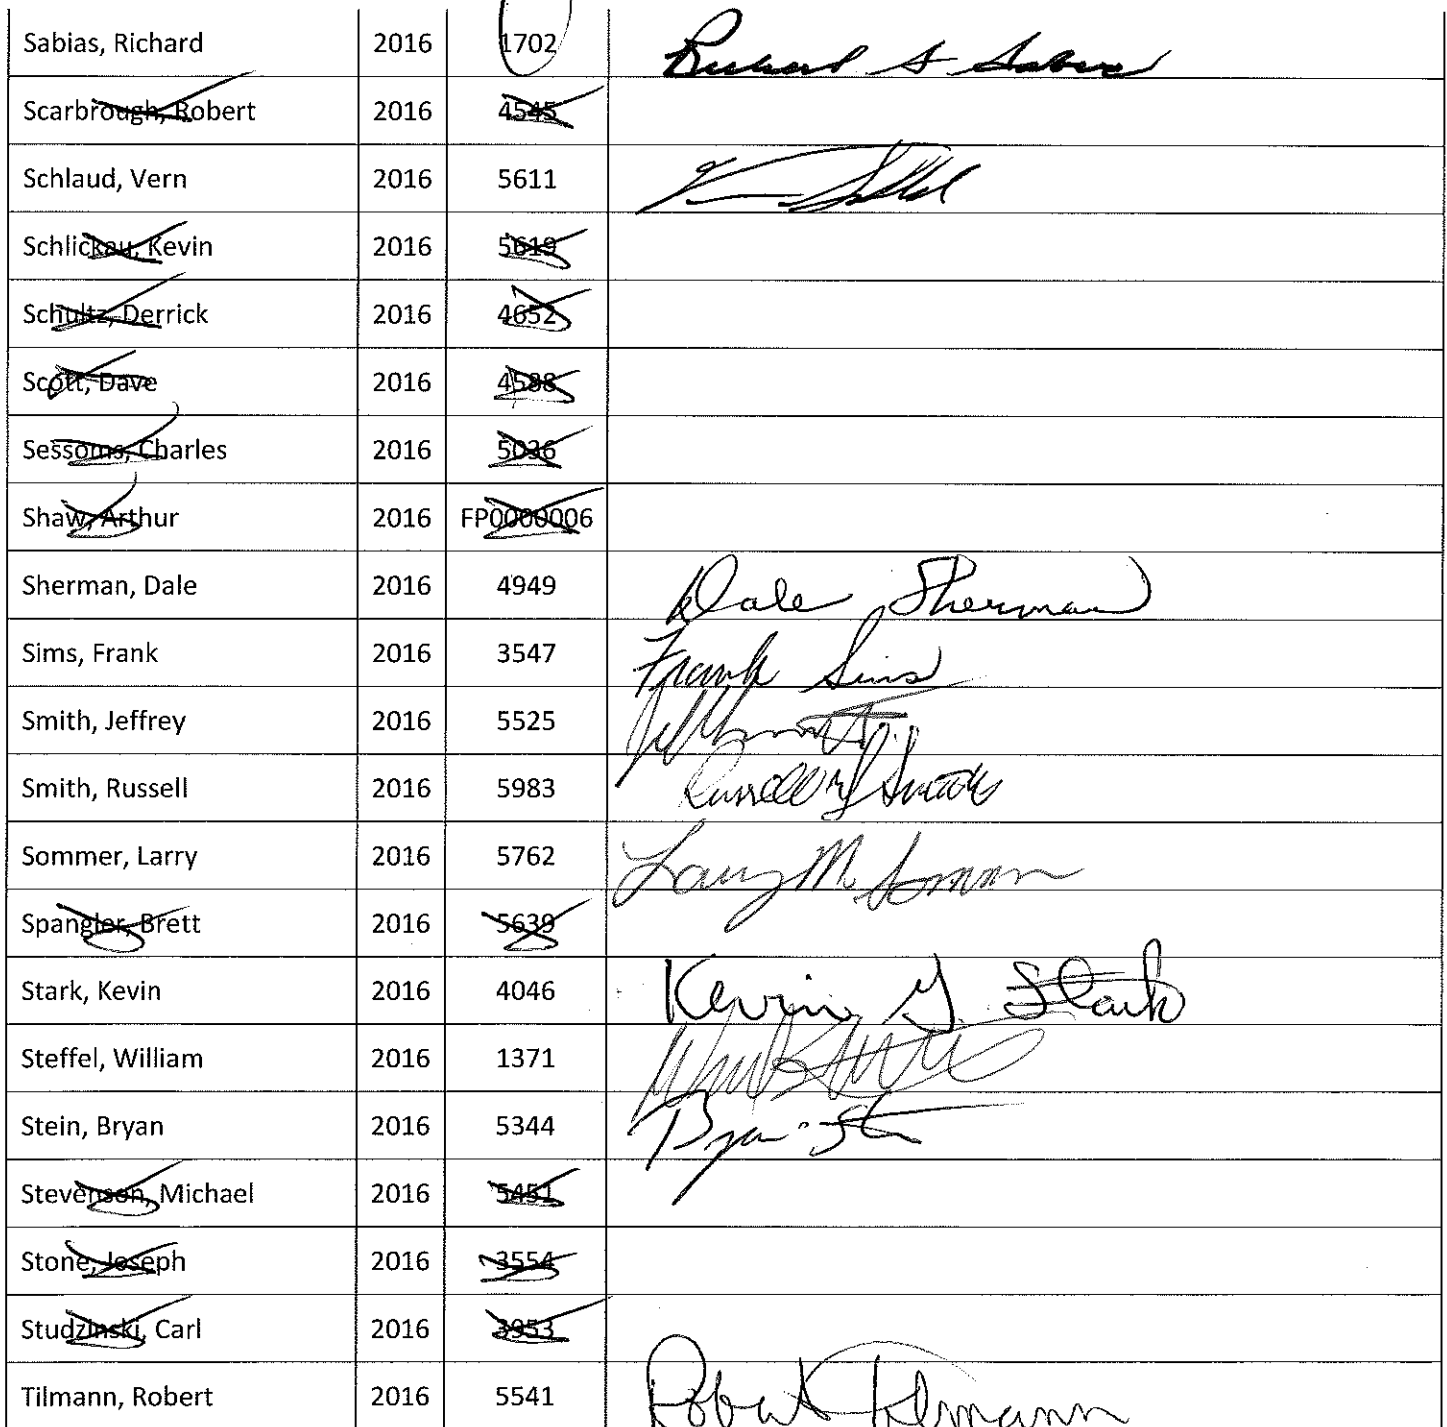 Sabias, Richard 2016 1702 Richard S Sabias
Scarbrough, Robert 2016 4545
Schlaud, Vern 2016 5611
Schlickau, Kevin 2016 5619
Schultz, Derrick 2016 4652
Scott, Dave 2016 4588
Sessoms, Charles 2016 5036
Shaw, Arthur 2016 FP0000006
Sherman, Dale 2016 4949 Dale Sherman
Sims, Frank 2016 3547 Frank Sims
Smith, Jeffrey 2016 5525
Smith, Russell 2016 5983 Russell Smith
Sommer, Larry 2016 5762 Larry M. Sommer
Spangler, Brett 2016 5639
Stark, Kevin 2016 4046 Kevin G. Stark
Steffel, William 2016 1371
Stein, Bryan 2016 5344 Bryan Stein
Stevenson, Michael 2016 5451
Stone, Joseph 2016 3554
Studzinski, Carl 2016 3953
Tilmann, Robert 2016 5541 Robert Tilmann